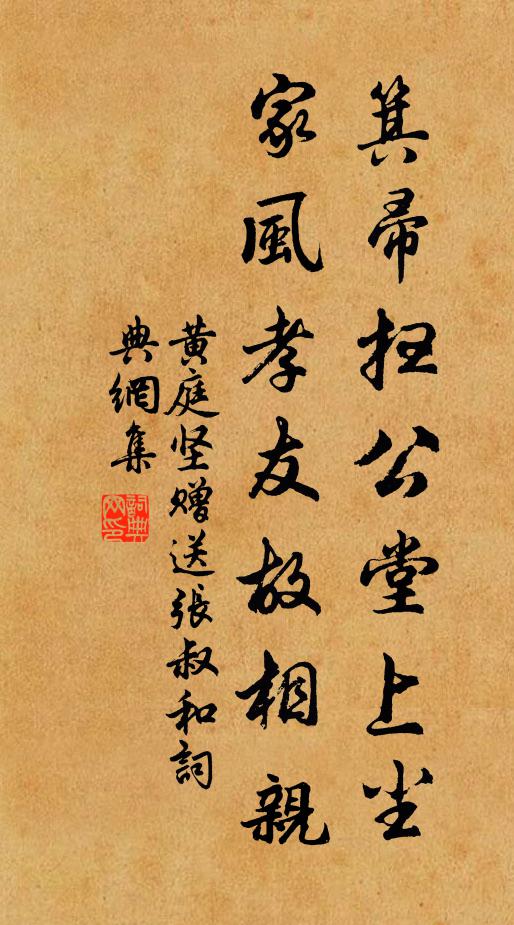 箕帚扫公堂上尘
家風孝友故相親
黄庭坚赠送張叔和詞
典網集
詞典網印